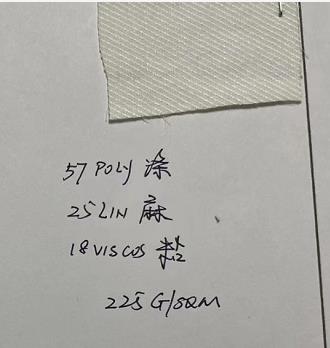 57 POLY 涤
25 LIN 麻
18 VISCOS 粘
225 G/SQM